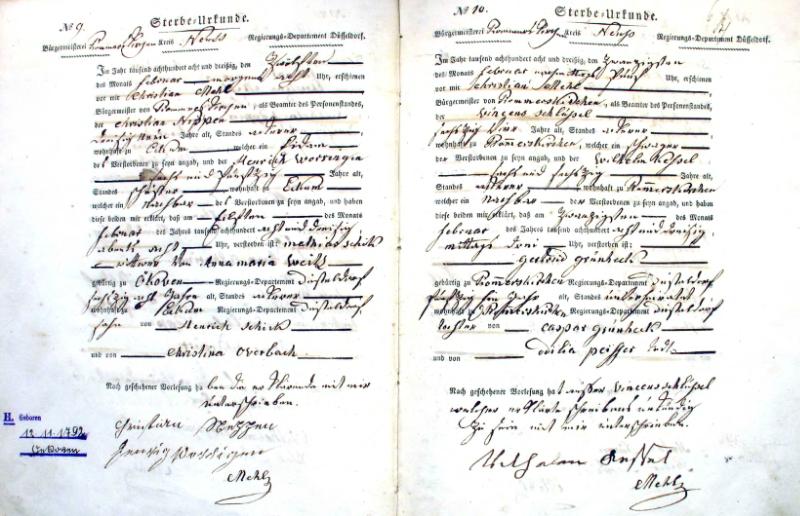 No 9.
Sterbe-Urkunde.
Bürgermeisterei Kreis Neuss Regierungs-Departement Düsseldorf.
Im Jahr tausend achthundert acht und dreißig, den Zwölften
des Monats Februar morgens acht Uhr, erschienen
vor mir Christian Mehl
Bürgermeister von , als Beamter des Personenstandes,
der Christian Neppen
Jahre alt, Standes Ackerer
wohnhaft zu Ekum welcher ein
des Verstorbenen zu seyn angab, und der Henrich Worringen
sechs und fünfzig Jahre alt,
Standes wohnhaft zu Ekum
welcher ein Nachbar des Verstorbenen zu seyn angab, und haben
diese beiden mir erklärt, daß am Elften des Monats
Februar des Jahres tausend achthundert acht und dreißig
abends acht Uhr, verstorben ist: Mathias Schick
Wittwer von Anna Maria Weitz
gebürtig zu Ekoven Regierungs-Departement Düsseldorf
sechszig acht Jahre alt, Standes Ackerer
wohnhaft zu Ekum Regierungs-Departement Düsseldorf
Sohn von Henrich Schick
und von Christina Overbach
Nach geschehener Vorlesung haben die Urkunde mit mir
unterschrieben.
Neppen
Mehl
H. Geboren
12.11.1792
No 10.
Sterbe-Urkunde.
Bürgermeisterei Kreis Neuss Regierungs-Departement Düsseldorf.
Im Jahr tausend achthundert acht und dreißig, den Zwanzigsten
des Monats Februar nachmittags fünf Uhr, erschienen
vor mir Christian Mehl
Bürgermeister von Rommerskirchen, als Beamter des Personenstandes,
der Vincens Schlüssel
sechszig vier Jahre alt, Standes Ackerer
wohnhaft zu Rommerskirchen, welcher ein Schwager
der Verstorbenen zu seyn angab, und der Wilhelm Kessel
sechs und sechszig Jahre alt,
Standes Ackerer wohnhaft zu Rommerskirchen
welcher ein Nachbar der Verstorbenen zu seyn angab, und haben
diese beiden mir erklärt, daß am Zwanzigsten des Monats
Februar des Jahres tausend achthundert acht und dreißig,
mittags drei Uhr, verstorben ist:
Gertrud Grünheck
gebürtig zu Rommerskirchen Regierungs-Departement Düsseldorf
Jahre alt, Standes unverheiratet
wohnhaft zu Rommerskirchen Regierungs-Departement Düsseldorf
Tochter von Caspar Grünheck
und von Peiffer
Nach geschehener Vorlesung hat außer Vincens Schlüssel
welcher erklärte schreibens unkundig
zu sein mit mir unterschrieben.
Wilhelm Kessel
Mehl